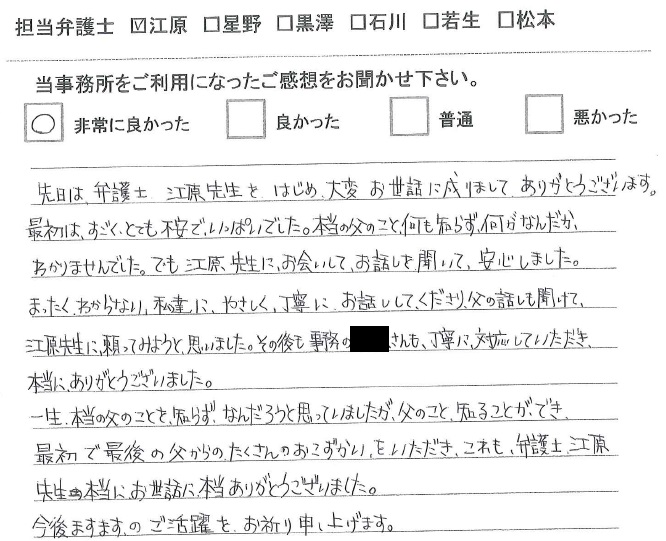 担当弁護士 ☑江原 □星野 □黒澤 □石川 □若生 □松本
当事務所をご利用になったご感想をお聞かせ下さい。
○ 非常に良かった □ 良かった □ 普通 □ 悪かった
先日は、弁護士 江原先生を はじめ、大変 お世話に成りまして、ありがとうございます。
最初は、すごく、とても 不安で、いっぱいでした。本当の父のこと、何も知らず、何がなんだか、
わかりませんでした。でも 江原、先生に、お会いして、お話しを聞いて、安心しました。
まったく、わからない、私達に、やさしく、丁寧に お話ししてくださり、父の話しも聞けて、
江原先生に、頼ってみようと、思いました。その後も 事務の さんも、丁寧に、対応していただき、
本当に、ありがとうございました。
一生、本当の父のことを、知らず、なんだろうと思っていましたが、父のこと、知ることが、でき、
最初で最後の父からの、たくさんのおこずかい、をいただき、これも、弁護士 江原
先生 本当にお世話に、本当ありがとうございました。
今後ますますのご活躍を、お祈り申し上げます。